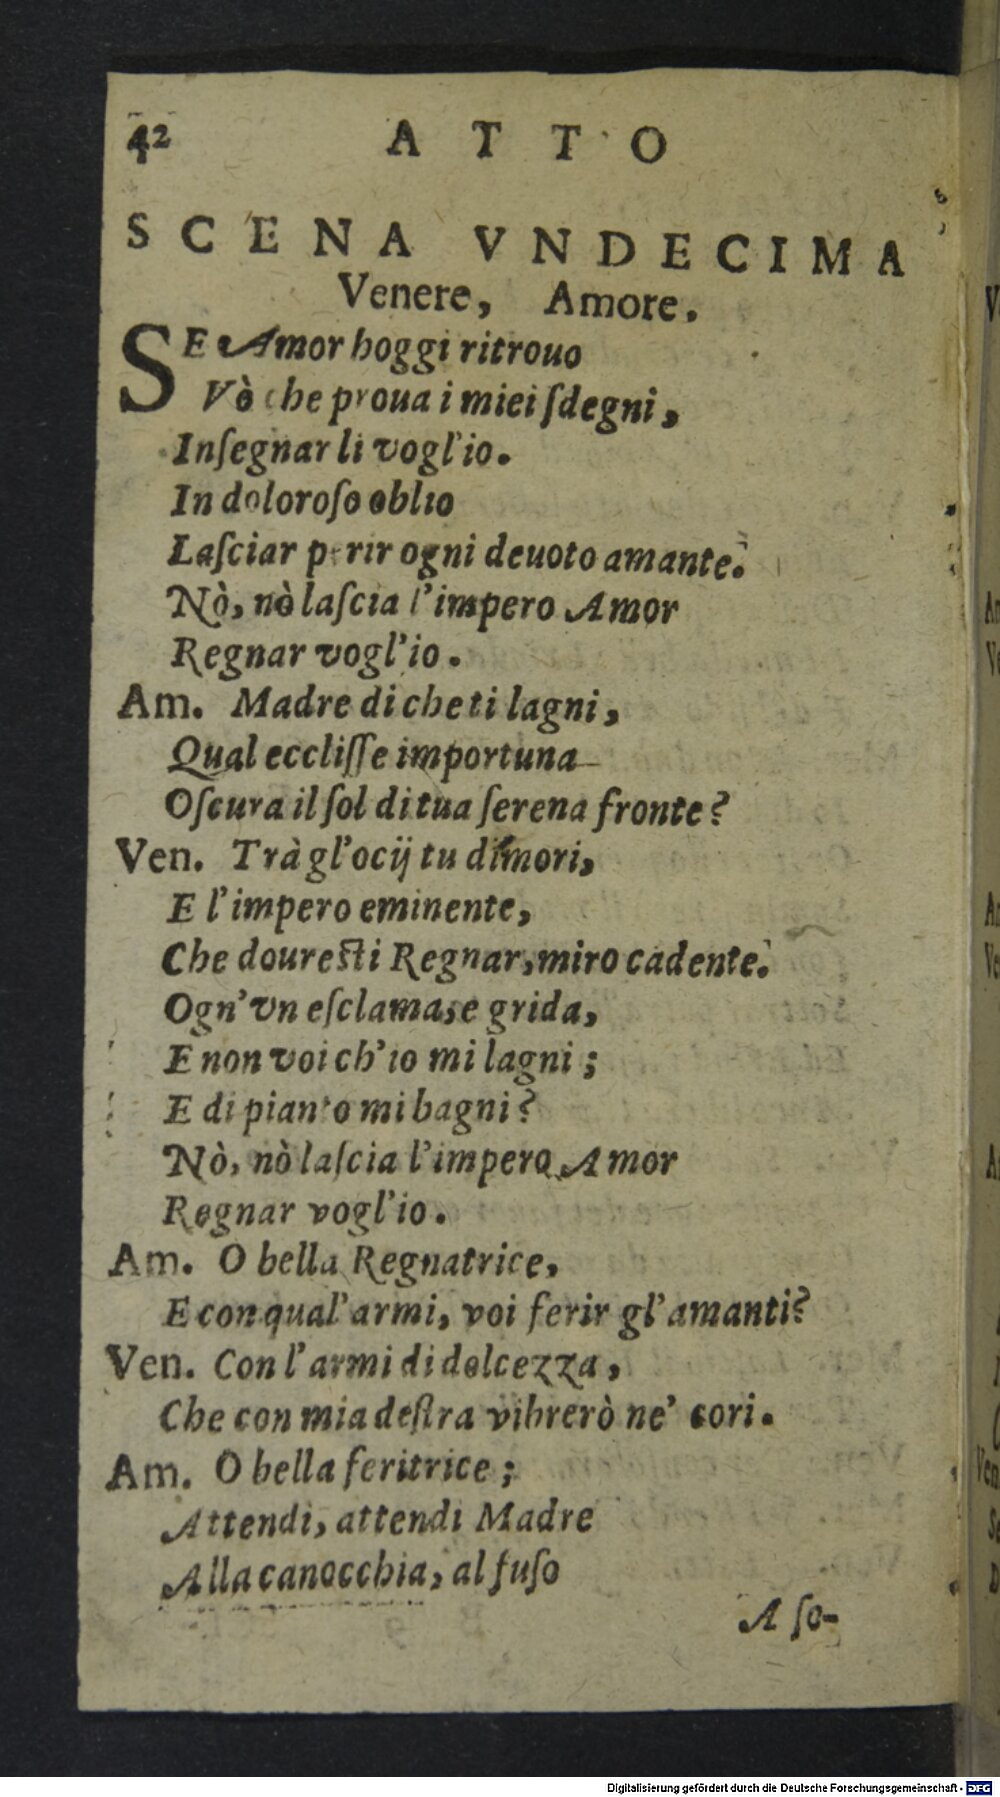 42 ATTO
SCENA VNDECIMA
Venere, Amore.
SE Amor hoggi ritrouo
Vò che proua i miei ſdegni,
Inſegnar li vogl'io.
In doloroſo oblio
Laſciar perir ogni deuoto amante.
Nò, nò laſcia l'impero Amor
Regnar vogl'io.
Am. Madre di che ti lagni,
Qual eccliſſe importuna
Oſcura il ſol di tua ſerena fronte?
Ven. Trà gl'ocij tu dimori,
E l'impero eminente,
Che doureſti Regnar, miro cadente.
Ogn'vn eſclama, e grida,
E non voi ch'io mi lagni;
E di pianto mi bagni?
Nò, nò laſcia l'impero Amor
Regnar vogl'io.
Am. O bella Regnatrice,
E con qual'armi, voi ferir gl'amanti?
Ven. Con l'armi di dolcezza,
Che con mia deſtra vibrerò ne' cori.
Am. O bella feritrice;
Attendi, attendi Madre
Alla canocchia, al fuſo
A ſo-
Digitalisierung gefördert durch die Deutsche Forschungsgemeinschaft - DFG